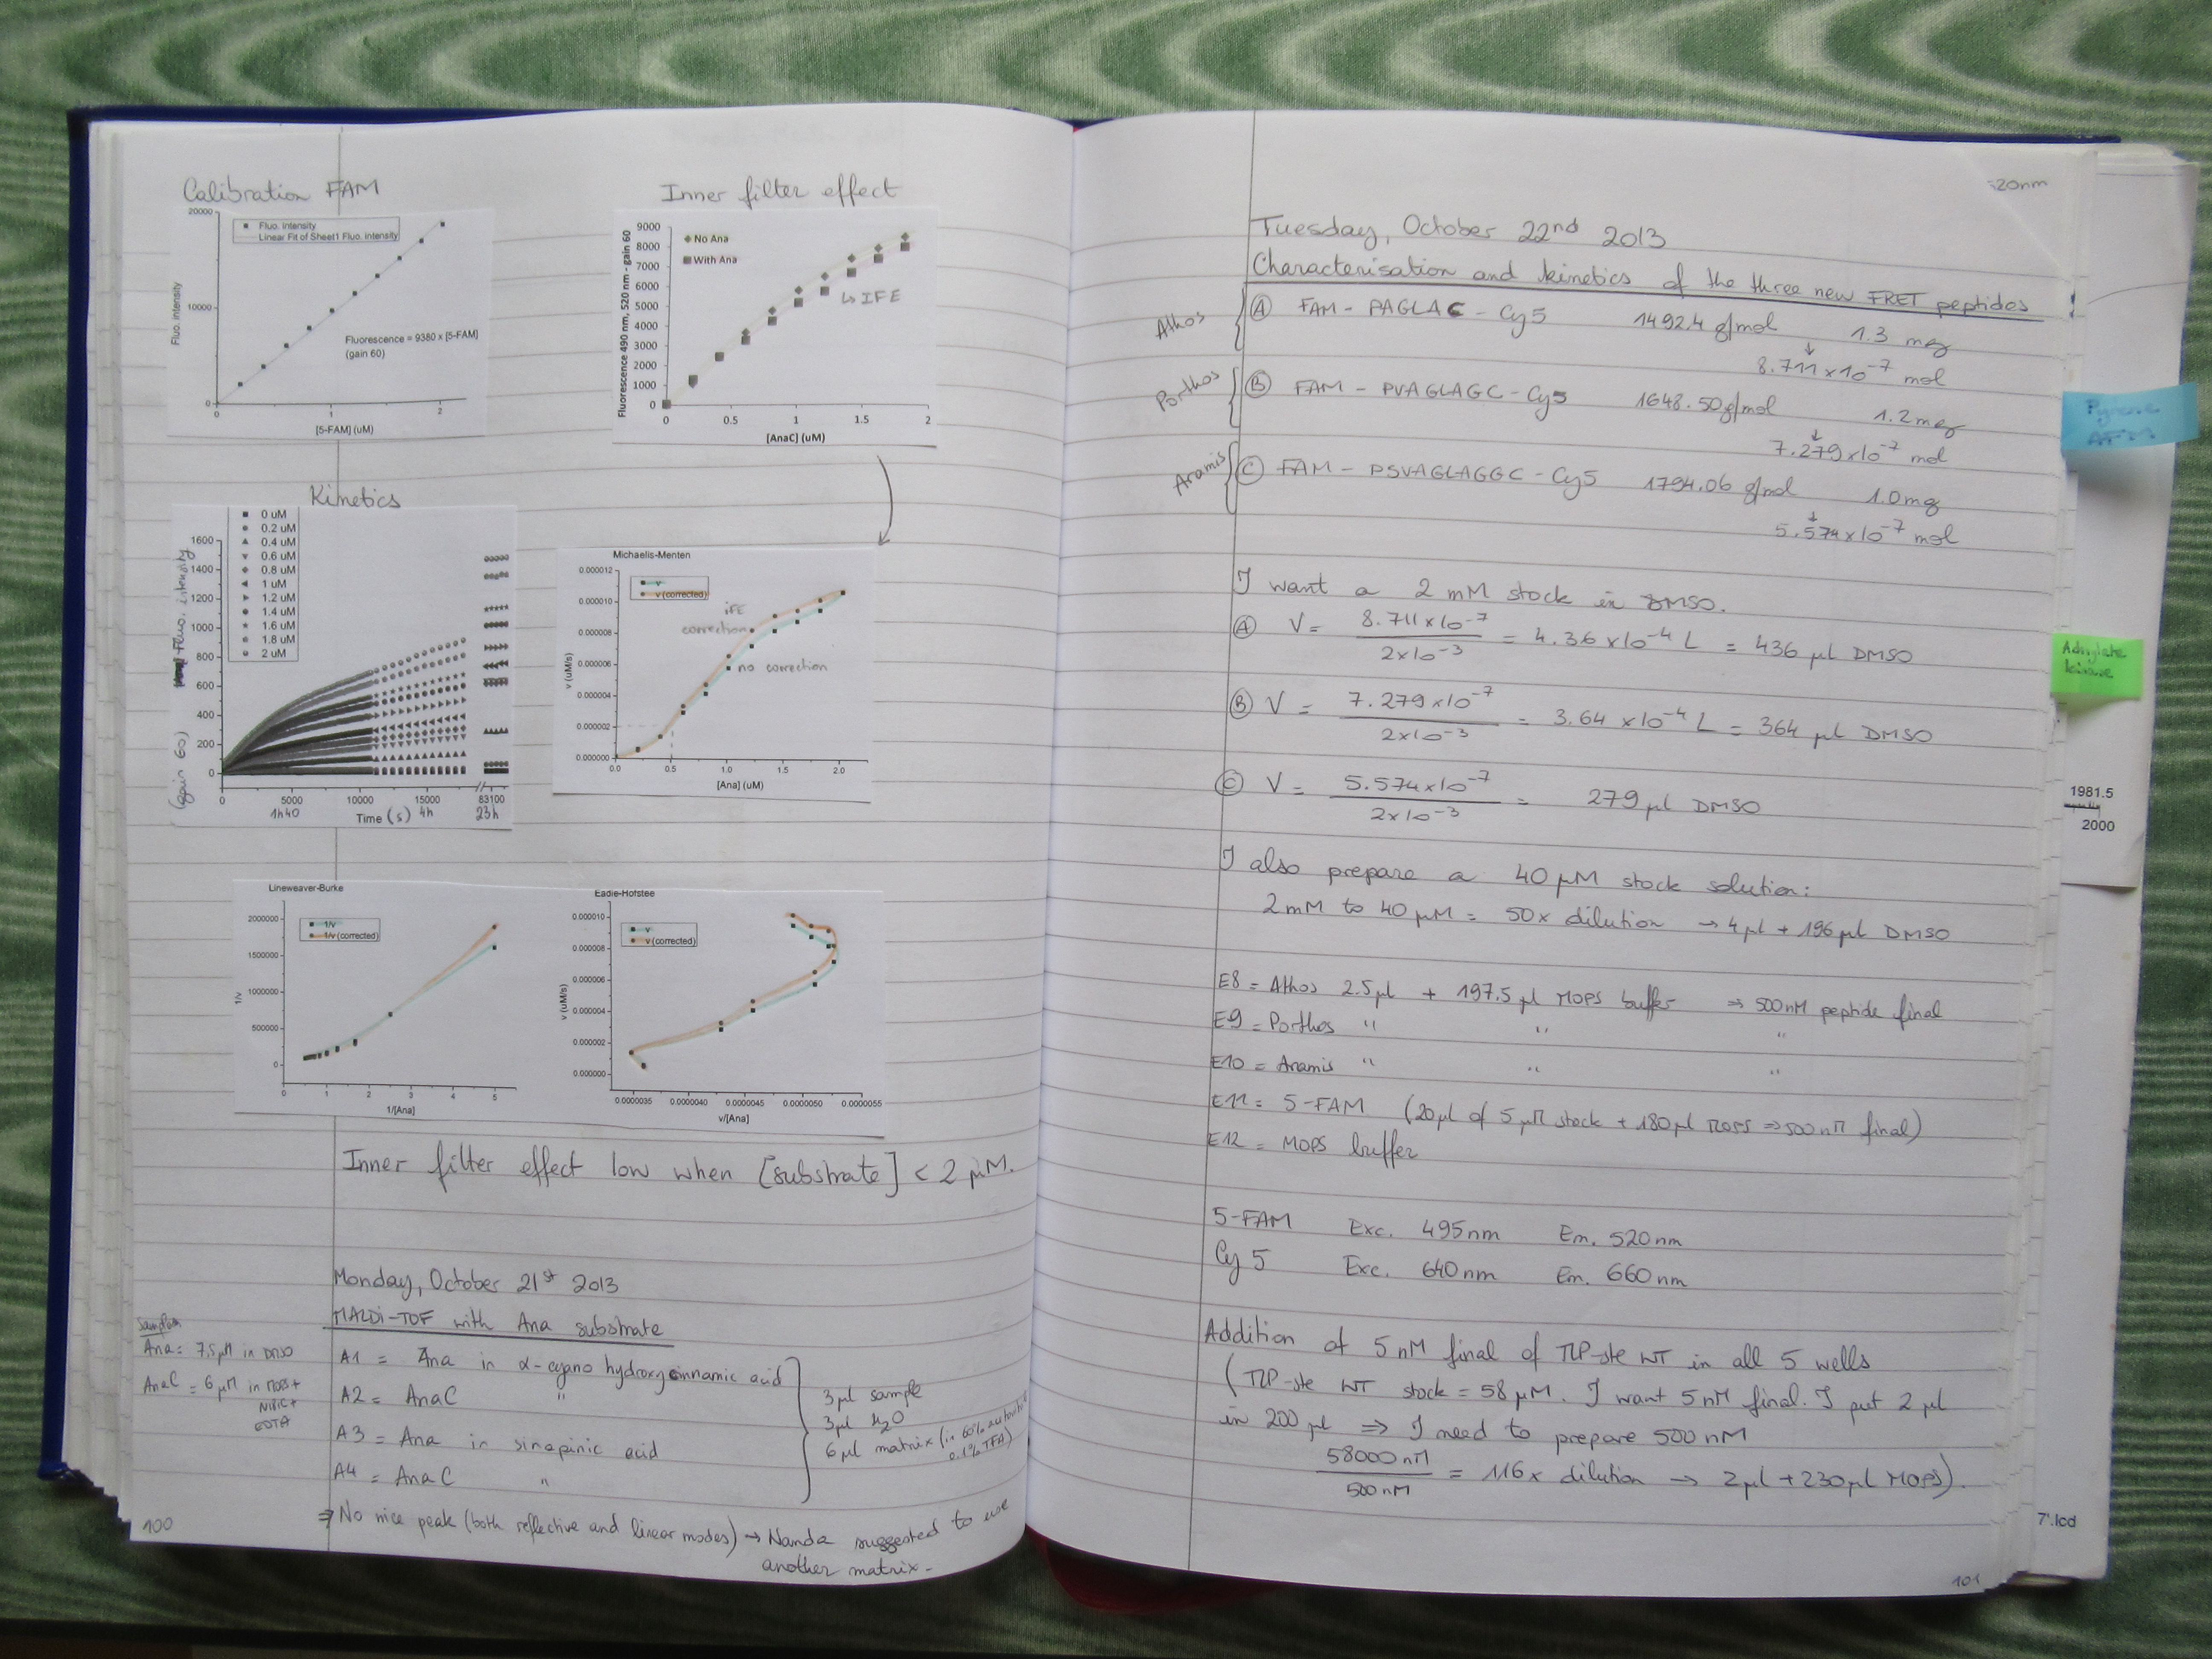 Calibration FAM
20000
10000
0
0 1 2
Fluo. intensity
Fluo. intensity
Linear Fit of Sheet1 Fluo. intensity
Fluorescence = 9380 x [5-FAM]
(gain 60)
[5-FAM] (uM)
Inner filter effect
Fluorescence 490 nm, 520 nm - gain 60
9000
8000
7000
6000
5000
4000
3000
2000
1000
0
No Ana
With Ana
↳ IFE
0 0.5 1 1.5 2
[AnaC] (uM)
Kinetics
0 uM
0.2 uM
0.4 uM
0.6 uM
0.8 uM
1 uM
1.2 uM
1.4 uM
1.6 uM
1.8 uM
2 uM
(gain 60) Fluo. intensity
1600
1400
1200
1000
800
600
400
200
0
0 5000 10000 15000 83100
1h40 Time (s) 4h 23h
Michaelis-Menten
v
v (corrected)
IFE
correction
no correction
v (uM/s)
0.000012
0.000010
0.000008
0.000006
0.000004
0.000002
0.000000
0.0 0.5 1.0 1.5 2.0
[Ana] (uM)
Lineweaver-Burke
1/v
1/v (corrected)
1/v
2000000
1500000
1000000
500000
0
0 1 2 3 4 5
1/[Ana]
Eadie-Hofstee
v
v (corrected)
v (uM/s)
0.000010
0.000008
0.000006
0.000004
0.000002
0.000000
0.0000035 0.0000040 0.0000045 0.0000050 0.0000055
v/[Ana]
Inner filter effect low when [substrate] < 2 µM.
Monday, October 21st 2013
MALDi-TOF with Ana substrate
Samples
Ana = 7.5 µM in DMSO
AnaC = 6 µM in MOPS +
NiSiC +
EDTA
A1 = Ana in α-cyano hydroxycinnamic acid
A2 = AnaC "
A3 = Ana in sinapinic acid
A4 = AnaC "
3 µl sample
3 µl H2O
6 µl matrix (in 60% acetonitrile
0.1% TFA)
⇒ No nice peak (both reflective and linear modes) → Nanda suggested to use
another matrix.
100
520nm
Tuesday, October 22nd 2013
Characterisation and kinetics of the three new FRET peptides
Athos Ⓐ FAM - PAGLAC - Cy5 1492.4 g/mol 1.3 mg
↓
8.711 x 10-7 mol
Porthos Ⓑ FAM - PVAGLAGC - Cy5 1648.50 g/mol 1.2 mg
↓
7.279 x 10-7 mol
Aramis Ⓒ FAM - PSVAGLAGGC - Cy5 1794.06 g/mol 1.0 mg
↓
5.574 x 10-7 mol
I want a 2 mM stock in DMSO.
Ⓐ V = 8.711 x 10-7 / 2 x 10-3 = 4.36 x 10-4 L = 436 µl DMSO
Ⓑ V = 7.279 x 10-7 / 2 x 10-3 = 3.64 x 10-4 L = 364 µl DMSO
Ⓒ V = 5.574 x 10-7 / 2 x 10-3 = 279 µl DMSO
I also prepare a 40 µM stock solution:
2 mM to 40 µM = 50x dilution → 4 µl + 196 µl DMSO
E8 = Athos 2.5 µl + 197.5 µl MOPS buffer ⇒ 500nM peptide final
E9 = Porthos " " "
E10 = Aramis " " "
E11 = 5-FAM (20 µl of 5 µM stock + 180 µl MOPS ⇒ 500 nM final)
E12 = MOPS buffer
5-FAM Exc. 495nm Em. 520nm
Cy5 Exc. 640nm Em. 660nm
Addition of 5 nM final of TLP-ste WT in all 5 wells
(TLP-ste WT stock = 58 µM. I want 5 nM final. I put 2 µl
in 200 µl ⇒ I need to prepare 500 nM
58000 nM / 500 nM = 116x dilution → 2 µl + 230 µl MOPS).
101
Pyrene
AFM
Adenylate
kinase
1981.5
2000
7'.lcd